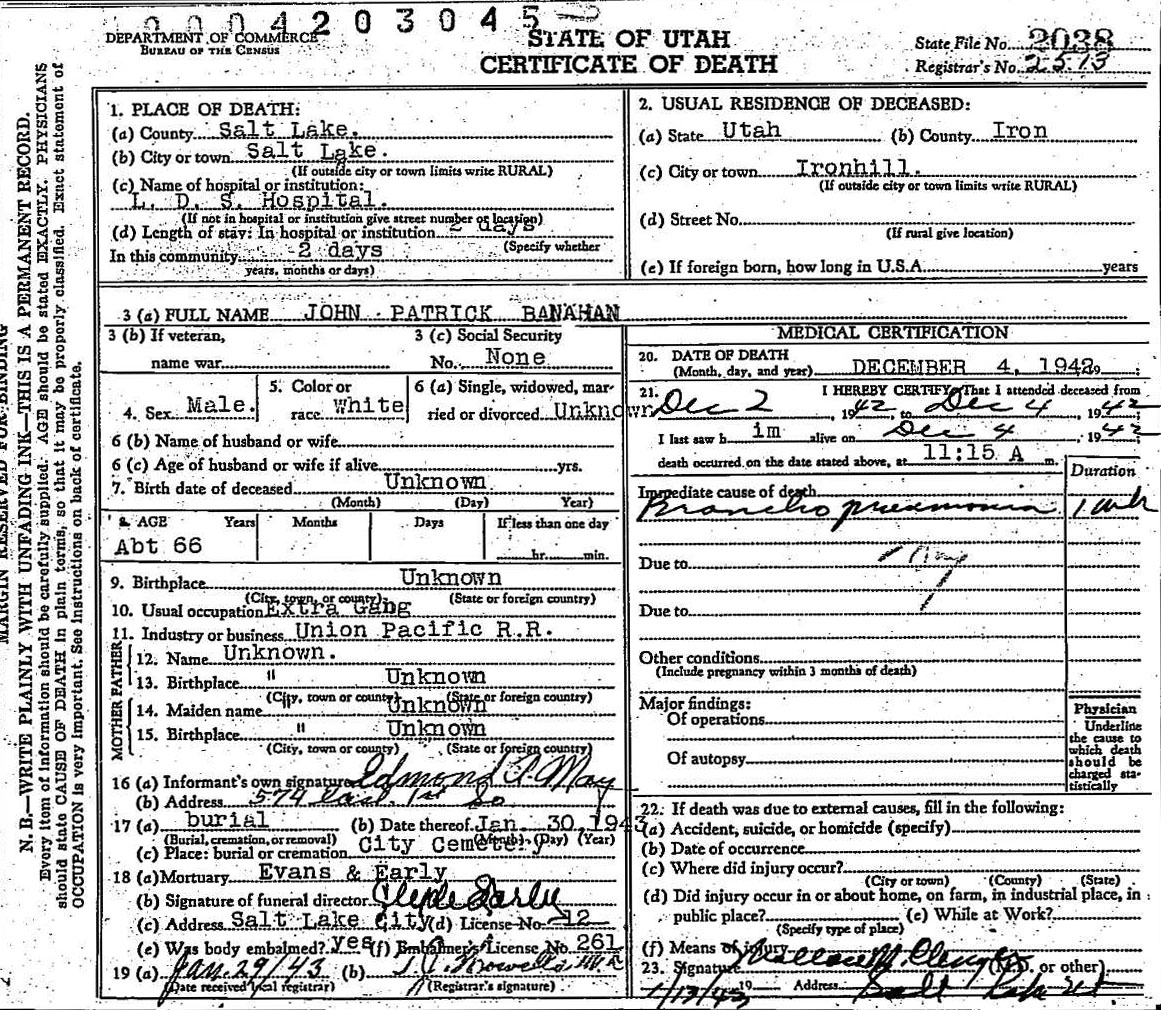 0004203045
DEPARTMENT OF COMMERCE
BUREAU OF THE CENSUS
STATE OF UTAH
CERTIFICATE OF DEATH
State File No. 2038
Registrar's No. 2573
MARGIN RESERVED FOR BINDING
N. B.—WRITE PLAINLY WITH UNFADING INK—THIS IS A PERMANENT RECORD.
Every item of information should be carefully supplied. AGE should be stated EXACTLY. PHYSICIANS
should state CAUSE OF DEATH in plain terms, so that it may be properly classified. Exact statement of
OCCUPATION is very important. See instructions on back of certificate.
1. PLACE OF DEATH:
(a) County Salt Lake.
(b) City or town Salt Lake.
(If outside city or town limits write RURAL)
(c) Name of hospital or institution:
L. D. S. Hospital.
(If not in hospital or institution give street number or location)
(d) Length of stay: In hospital or institution 2 days
(Specify whether
In this community 2 days
years, months or days)
2. USUAL RESIDENCE OF DECEASED:
(a) State Utah (b) County Iron
(c) City or town Ironhill.
(If outside city or town limits write RURAL)
(d) Street No.
(If rural give location)
(e) If foreign born, how long in U.S.A. years
3 (a) FULL NAME JOHN PATRICK BANAHAN
3 (b) If veteran,
name war
3 (c) Social Security
No. None
4. Sex Male.
5. Color or
race White
6 (a) Single, widowed, mar-
ried or divorced Unknown
6 (b) Name of husband or wife
6 (c) Age of husband or wife if alive yrs.
7. Birth date of deceased Unknown
(Month) (Day) Year)
8. AGE Years Months Days If less than one day
Abt 66 hr. min.
9. Birthplace Unknown
(City, town, or county) (State or foreign country)
10. Usual occupation Extra Gang
11. Industry or business Union Pacific R.R.
FATHER
12. Name Unknown.
13. Birthplace " Unknown
(City, town or county) (State or foreign country)
MOTHER
14. Maiden name " Unknown
15. Birthplace " Unknown
(City, town or county) (State or foreign country)
16 (a) Informant's own signature Edmond P. May
(b) Address 574 East 1st So
17 (a) burial (b) Date thereof Jan. 30, 1943
(Burial, cremation, or removal) (Month) (Day) (Year)
(c) Place: burial or cremation City Cemetery
18 (a) Mortuary Evans & Early
(b) Signature of funeral director Clyde Early
(c) Address Salt Lake City (d) License No. 12
(e) Was body embalmed? yes (f) Embalmer's License No. 261
19 (a) Jan. 29/43 (b)
(Date received local registrar) (Registrar's signature)
MEDICAL CERTIFICATION
20. DATE OF DEATH
(Month, day, and year) DECEMBER 4, 1942
21. I HEREBY CERTIFY, That I attended deceased from
Dec 2, 1942, to Dec 4, 1942;
I last saw h im alive on Dec 4, 1942;
death occurred on the date stated above, at 11:15 A m.
Duration
Immediate cause of death
Broncho pneumonia 1 wk
Due to
Due to
Other conditions
(Include pregnancy within 3 months of death)
Major findings:
Of operations
Of autopsy
Physician
Underline
the cause to
which death
should be
charged sta-
tistically
22. If death was due to external causes, fill in the following:
(a) Accident, suicide, or homicide (specify)
(b) Date of occurrence
(c) Where did injury occur?
(City or town) (County) (State)
(d) Did injury occur in or about home, on farm, in industrial place, in
public place? (e) While at Work?
(Specify type of place)
(f) Means of injury
23. Signature (M.D. or other)
1/13/43 19 Address Salt Lake Ut